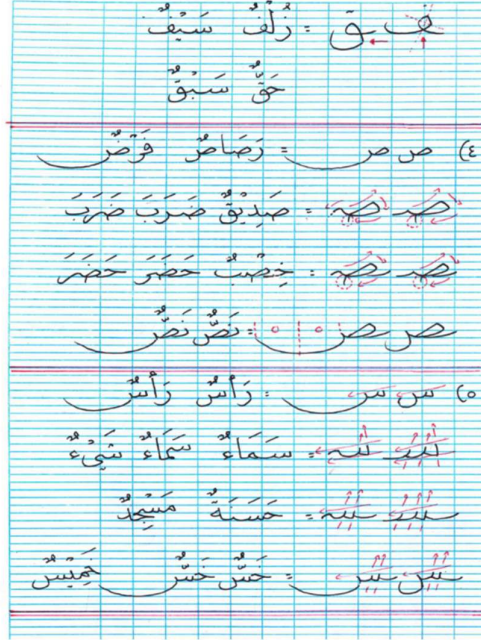 ف ق = زُلَفٌ سَيْفٌ
حَقٌّ سَبْقٌ
٤) ص ص = رَصَاصٌ فَرْضٌ
صـ صـ = صَدِيْقٌ ضَرَبَ ضَرَبَ
ـصـ ـصـ = خِصْبٌ حَضَرَ حَضَرَ
ـص ـص = نَصٌّ نَصٌّ
٥) س س = رَأْسٌ رَأْسٌ
سـ سـ = سَمَاءٌ سَمَاءٌ شَيْءٌ
ـسـ ـسـ = حَسَنَةٌ مَسْجِدٌ
ـس ـس = خَسٌّ خَسٌّ خَمِيْسٌ